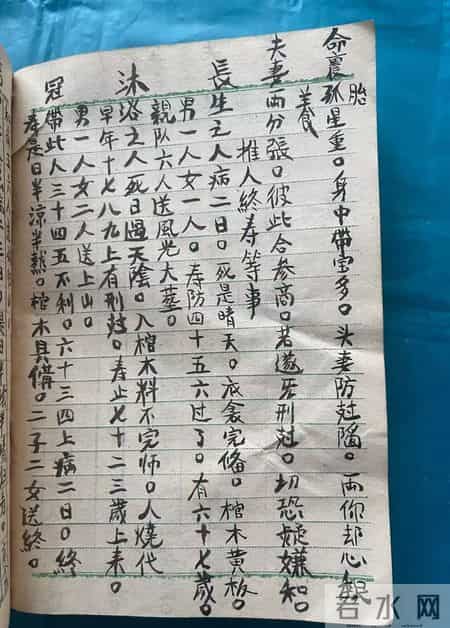 胎
命裏孤星重。身中帶宝多。夫妻防尅隔。两仰却心
養
夫妻两分張。彼此合参商。若遂牙刑尅。切恐疑嫌和。
推人終寿等事
長生之人病二日。死是晴天。衣衾完备。棺木黄板。
男一人女一人。寿防四十五六过了。有六十七歲。
親队六人送風光大葬。
沐浴之人死日過天陰。入棺木料不完师。人燒代
早年十七八九上有刑尅。寿止七十二三歲上来。
男一人女二人送上山。
冠帶此人三十四五不利。六十三四上病二日。終
寿是日半凉半热。棺木具備。二子二女送終。
若水网